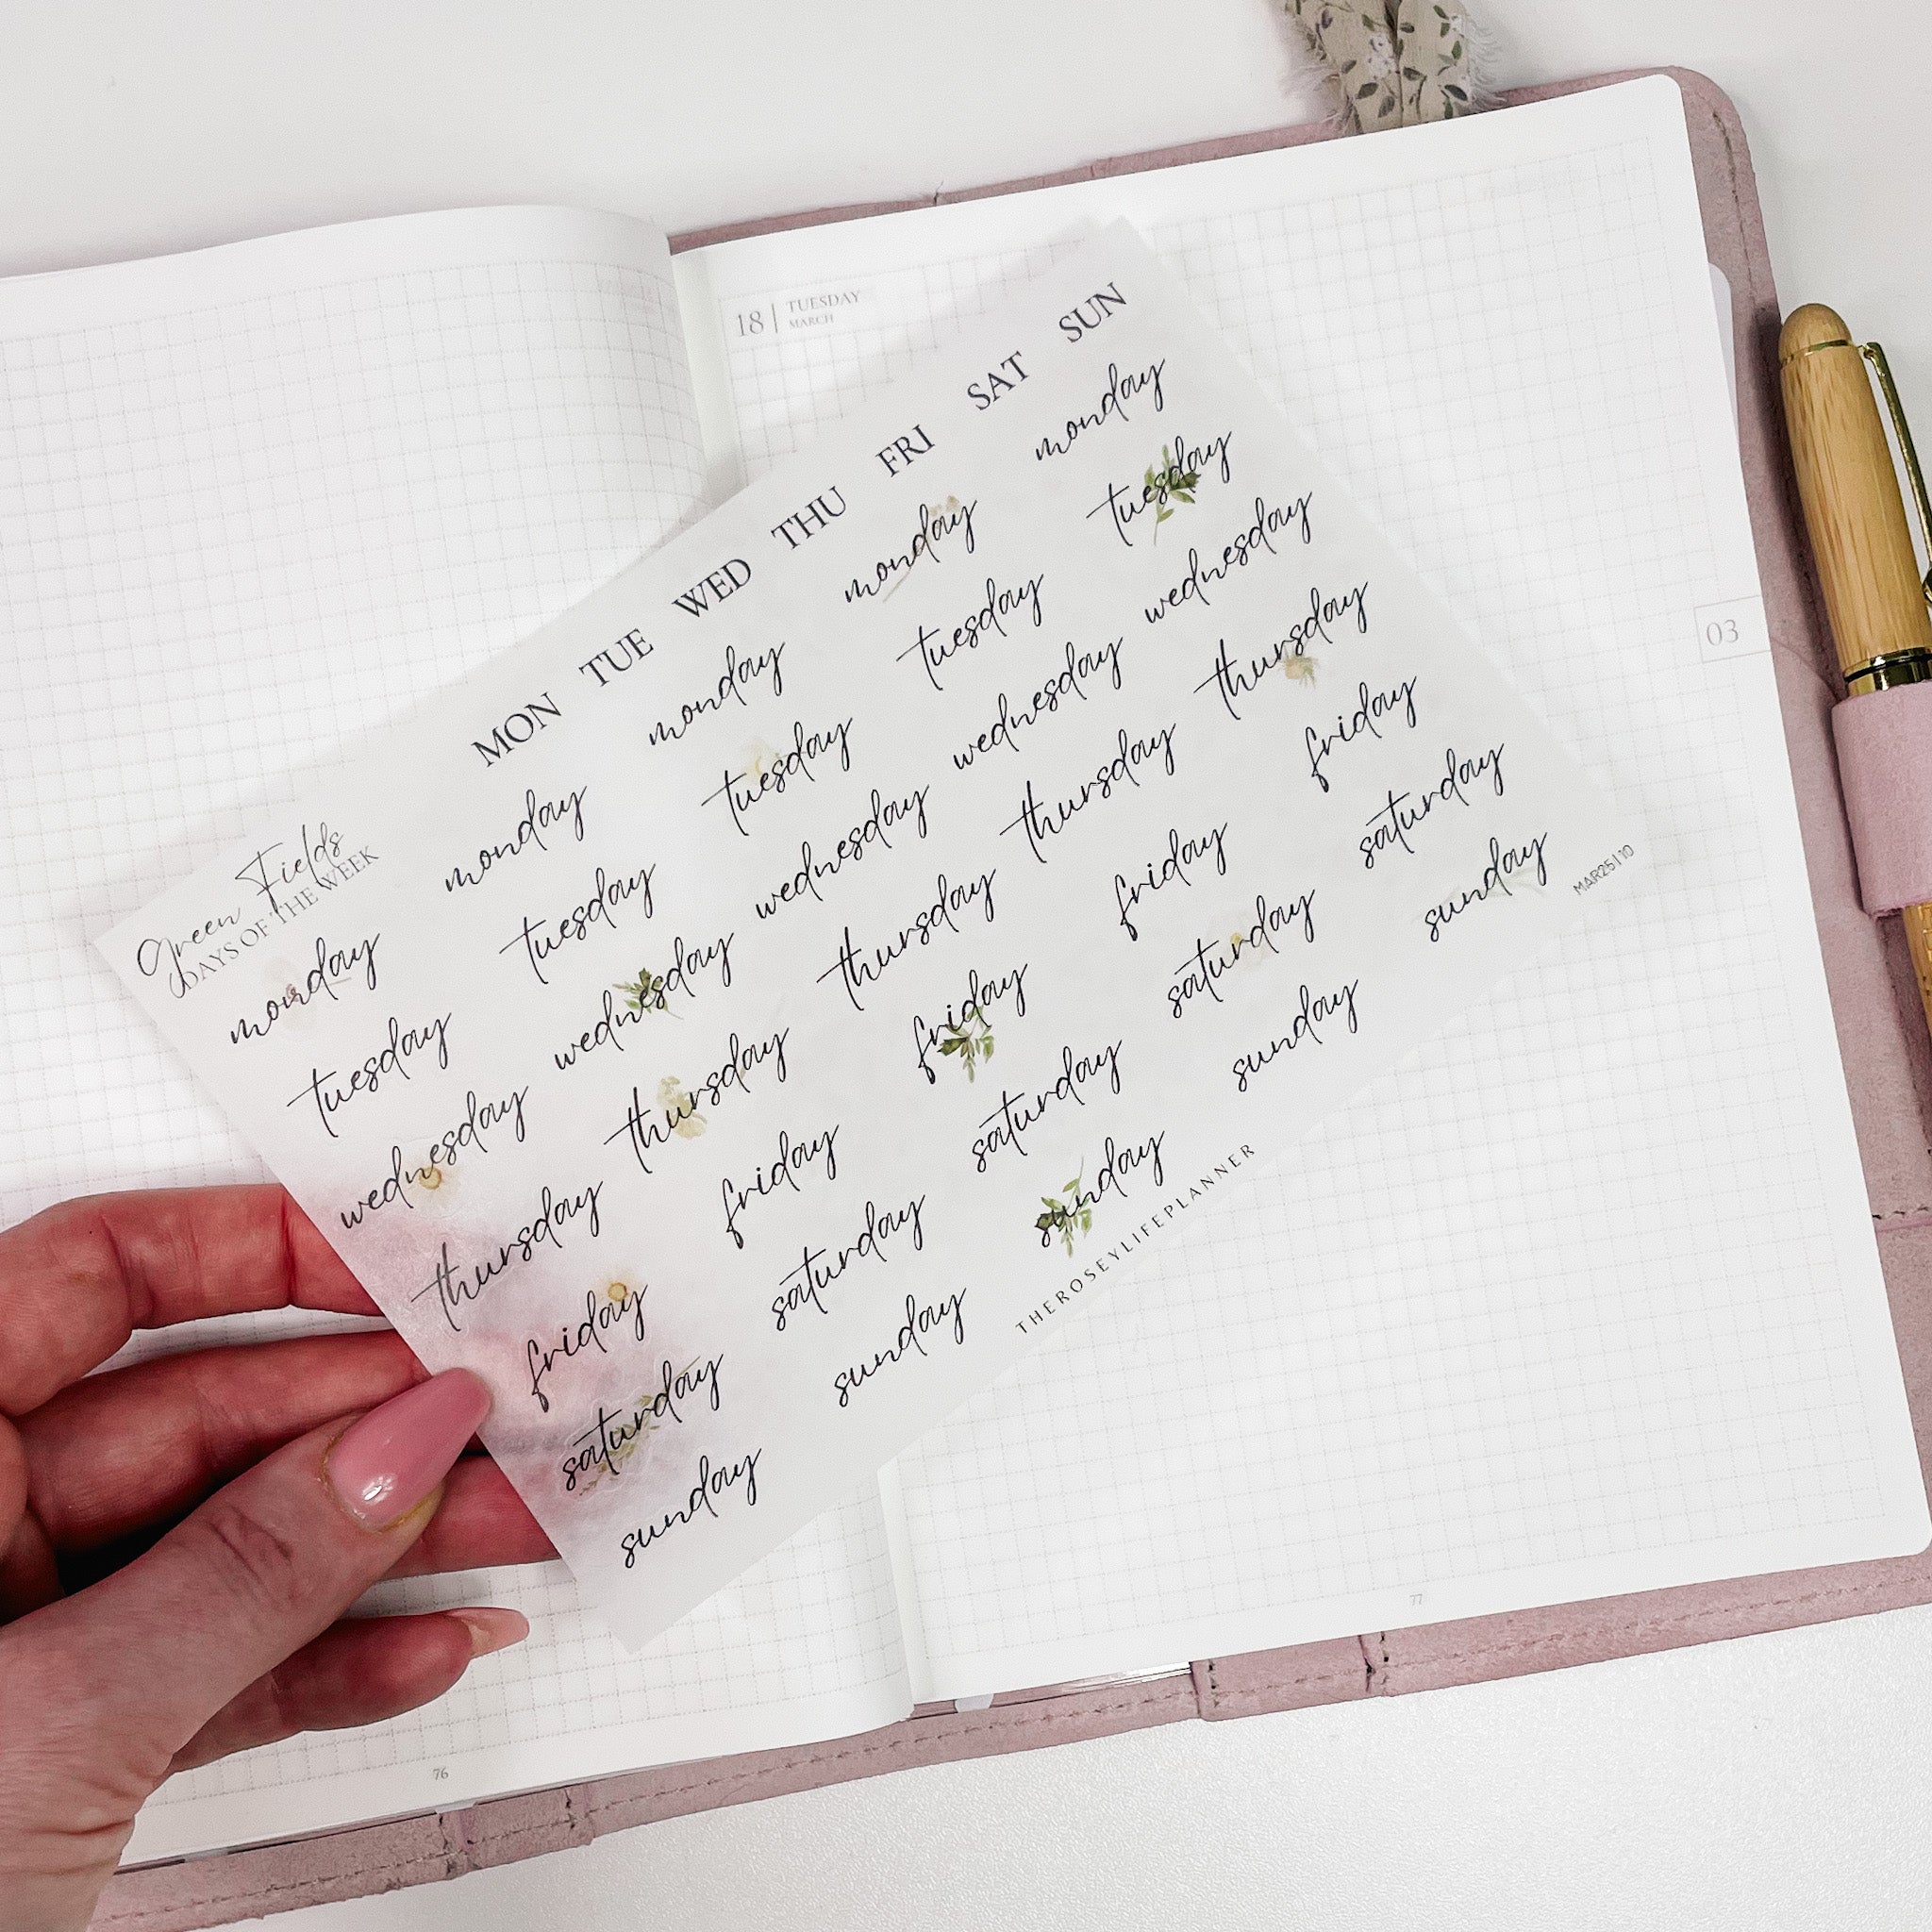 18 | TUESDAY
MARCH
03
Green Fields
DAYS OF THE WEEK
MON TUE WED THU FRI SAT SUN
monday monday monday monday monday
tuesday tuesday tuesday tuesday tuesday
wednesday wednesday wednesday wednesday wednesday
thursday thursday thursday thursday thursday
friday friday friday friday friday
saturday saturday saturday saturday saturday
sunday sunday sunday sunday sunday
THEROSEYLIFEPLANNER
MAR25110
76
77